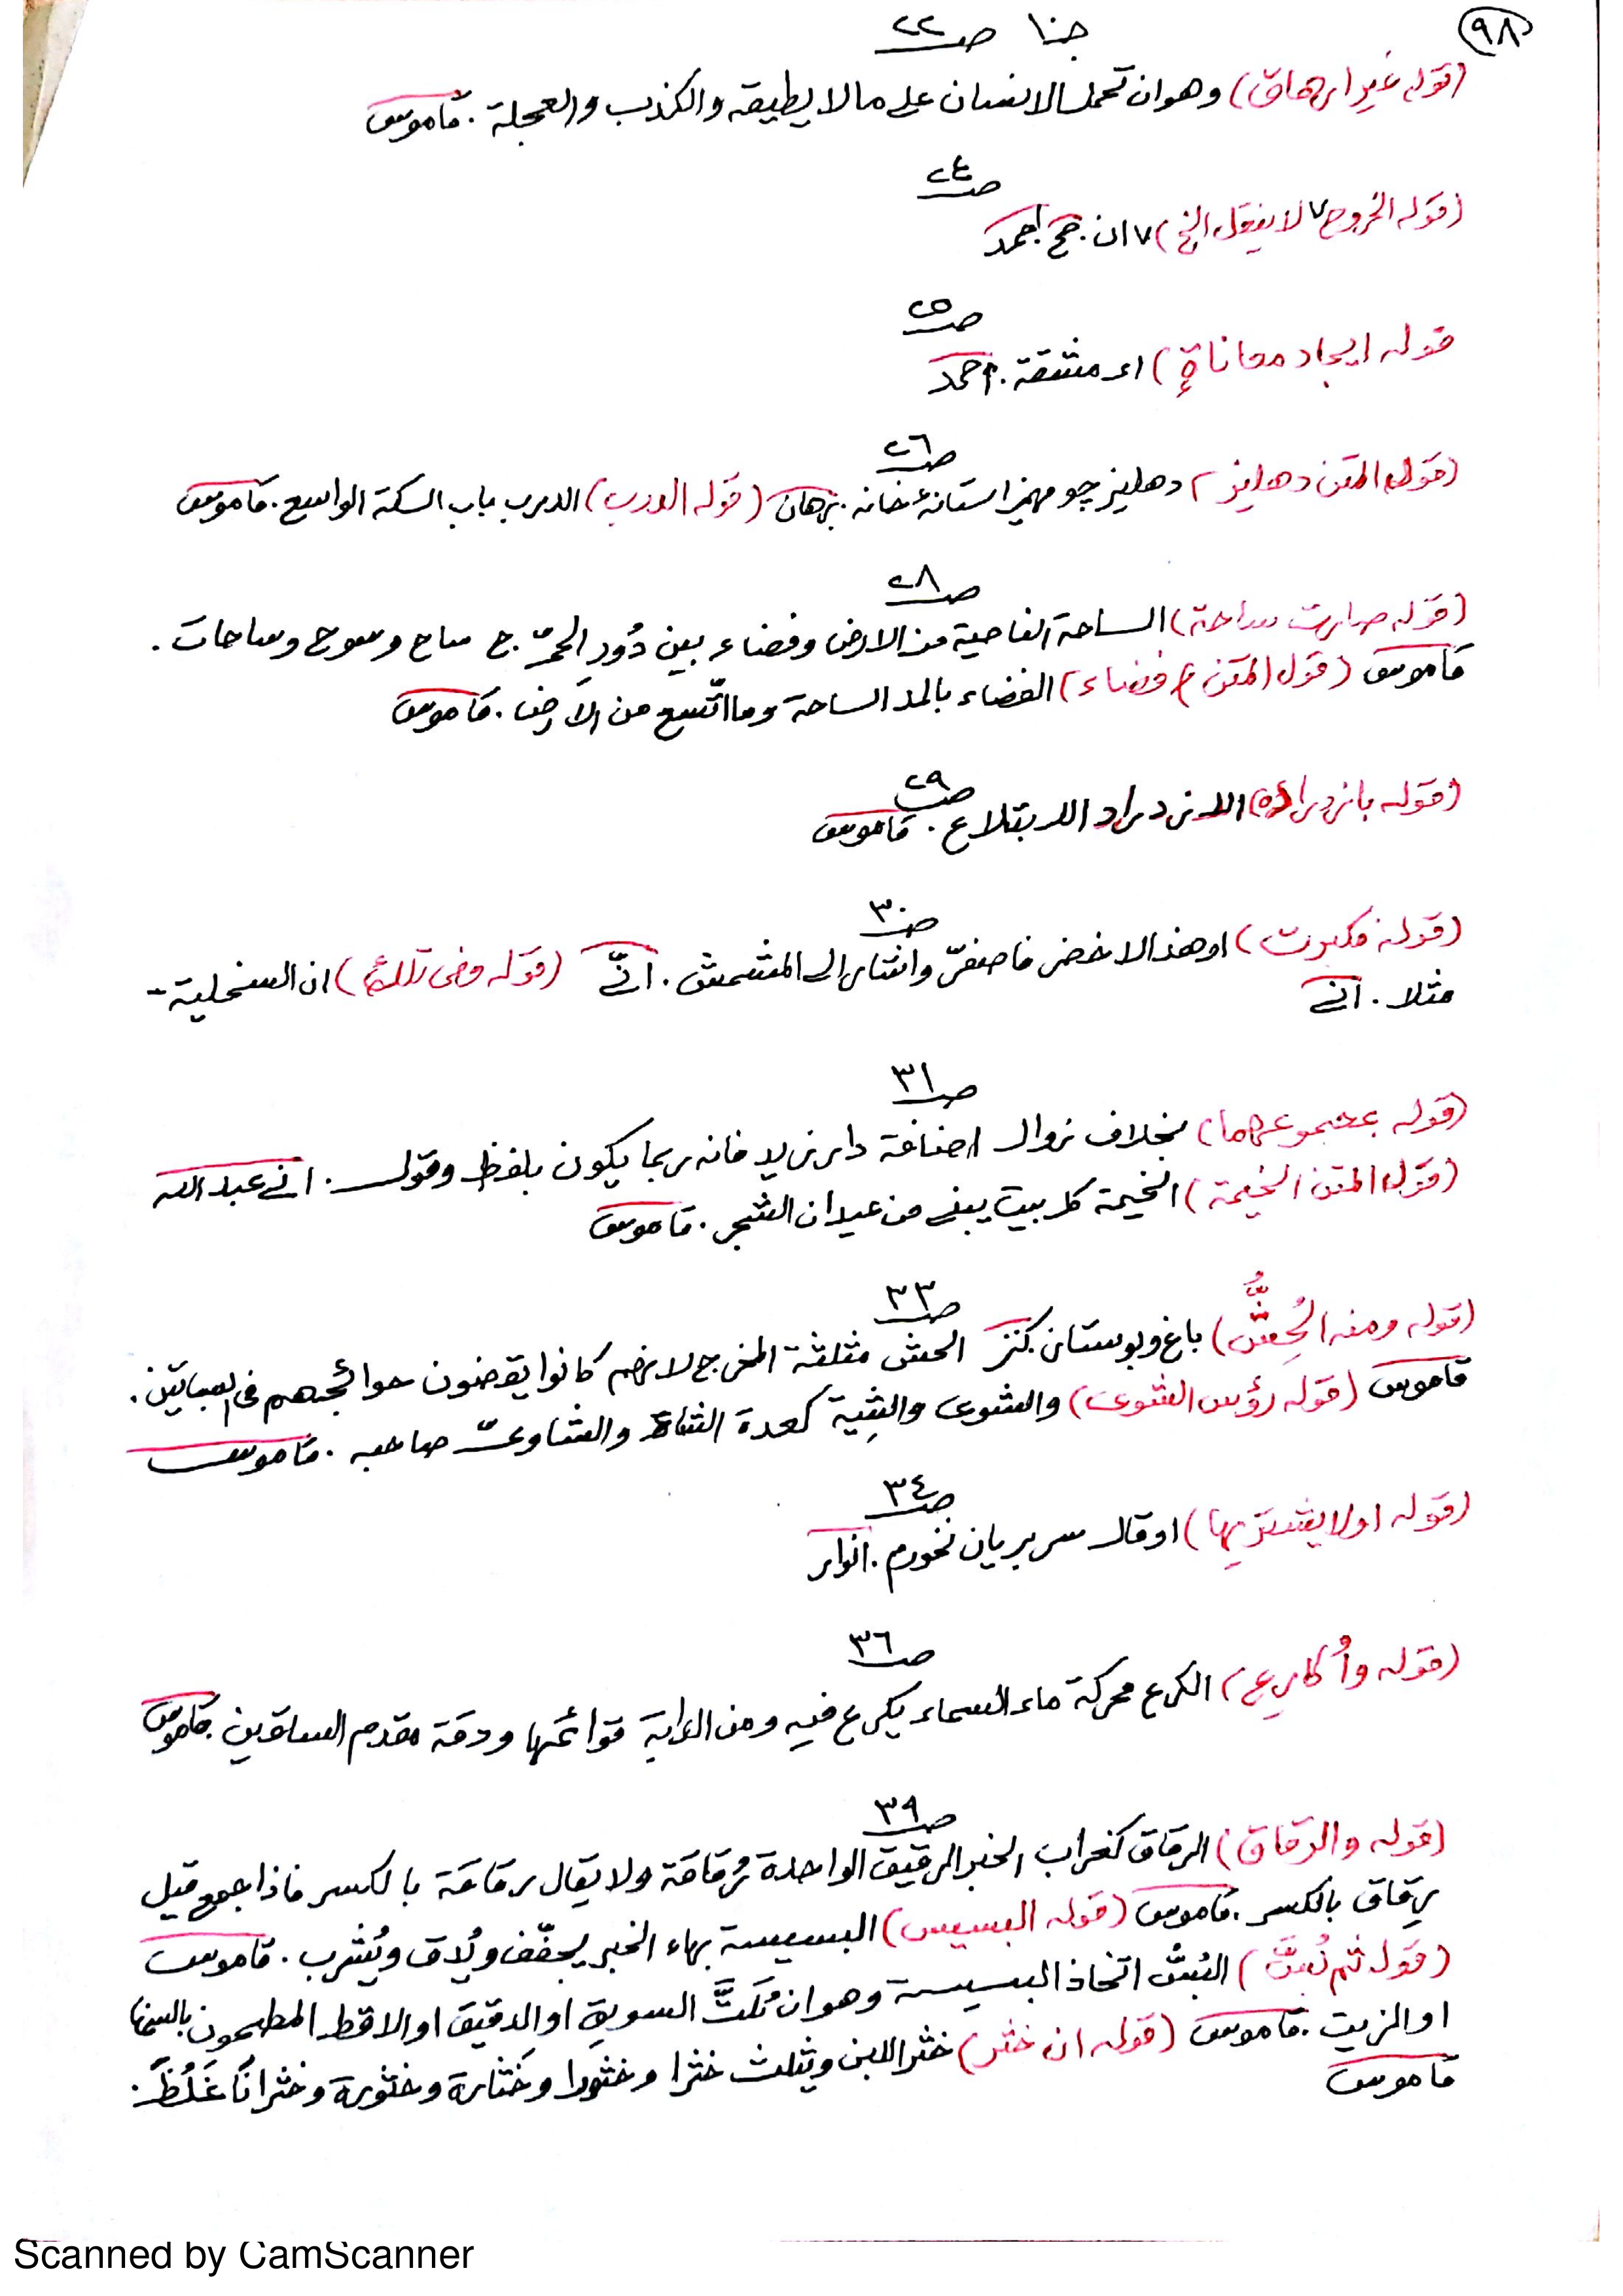 ٩٨
جنا صـ ٢٢
(قوله غير ارهاق) وهو ان تحمل الانسان على ما لا يطيقه والكذب والعجلة . قاموس
صـ ٢٤
(قوله الخروج ٧ لا ينقل الخ) ٧ ان جح احمد
صـ ٢٥
قوله ايجاد معاناة) اى مشقة . احمد
صـ ٢٦
(قول المتن دهليز) دهليز چو مهميز استانهٔ خانه . برهان (قوله الدرب) الدرب باب السكة الواسع . قاموس
صـ ٢٨
(قوله صارت ساحة) الساحة الناحية من الارض وفضاء بين دُور الحىّ . ج ساح وسوح وساحات .
قاموس (قول المتن فضاء) الفضاء بالمد الساحة وما اتّسع من الارض . قاموس
صـ ٢٩
(قوله بازدراده) الازدراد الابتلاع . قاموس
صـ ٣٠
(قوله فكبرت) او هذا الاخضر فاصفرّ واشار الى المشمش . انّى (قوله وفى تلك) ان السخلية -
مثلا . انى
صـ ٣١
(قوله بمجموعهما) بخلاف زوال اضافة دار زيد فانه ربما يكون بلفظ وقول . انى عبد الله
(قول المتن الخيمة) الخيمة كل بيت يبنى من عيدان الشجر . قاموس
صـ ٣٣
(قوله ومنه الحُِشُّ) باغ وبوستان كنز الحش مثلثة المخرج لانهم كانوا يقضون حوائجهم فى البساتين .
قاموس (قوله رؤس الشوى) والشوى والشِية كعدة الشاة والشاوىّ صاحبه . قاموس
صـ ٣٤
(قوله او لا يشتريها) او قال سر بريان نخورم . انوار
صـ ٣٦
(قوله وأكارع) الكرع محركة ماء السماء يكرع فيه ومن الدابة قوائمها ودقة مقدم الساقين . قاموس
صـ ٣٩
(قوله والرقاق) الرقاق كغراب الخبز الرقيق الواحدة رُقاقة ولا يقال رقاقة بالكسر فاذا جمع قيل
رِقاق بالكسر . قاموس (قوله البسيس) البسيسة بهاء الخبز يجفّف ويُدق ويُشرب . قاموس
(قوله ثم بُسَّ) البُسّ اتخاذ البسيسة وهو ان يُلَتَّ السويق او الدقيق او الاقط المطحون بالسمن
او الزيت . قاموس (قوله ان خثر) خثر اللبن ويثلث خثرا وخثورا وخثارة وخثورة وخثرانًا غَلُظَ .
قاموس
Scanned by CamScanner